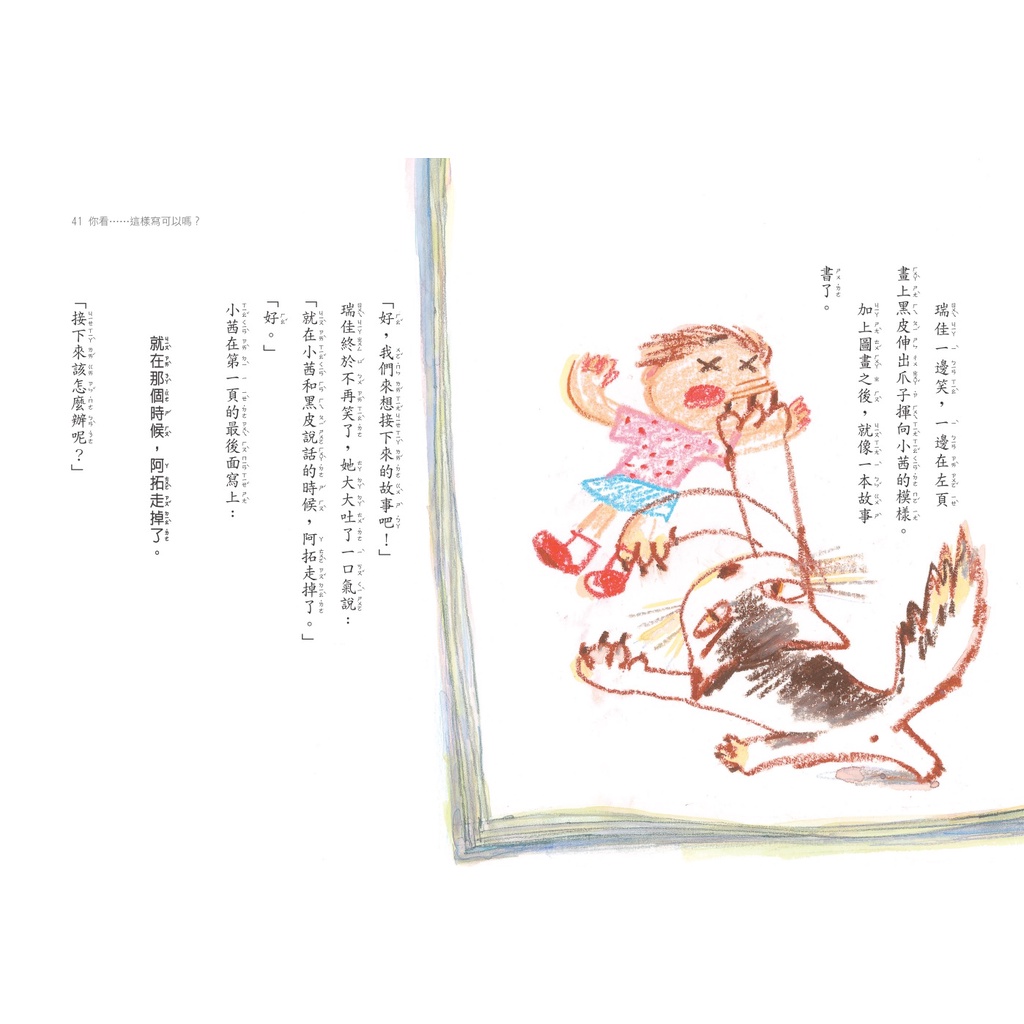 瑞佳一邊笑，一邊在左頁
畫上黑皮伸出爪子揮向小茜的模樣。
加上圖畫之後，就像一本故事
書了。
41 你看……這樣寫可以嗎？
「好，我們來想接下來的故事吧！」
瑞佳終於不再笑了，她大大吐了一口氣說：
「就在小茜和黑皮說話的時候，阿拓走掉了。」
「好。」
小茜在第一頁的最後面寫上：
就在那個時候，阿拓走掉了。
「接下來該怎麼辦呢？」